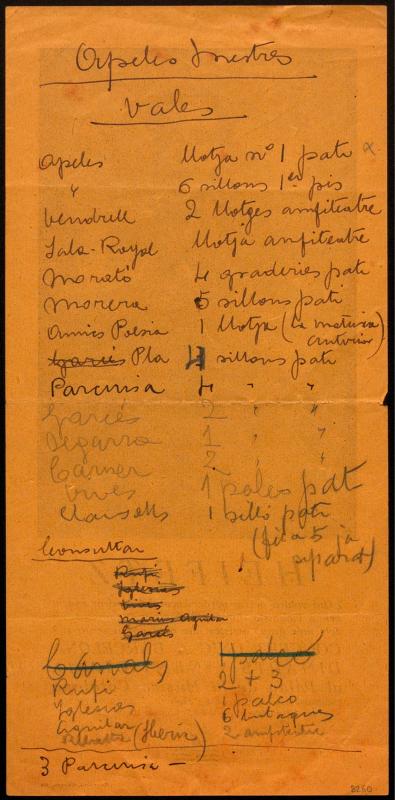 Apeles Mestres
Vales
Apeles Llotja nº 1 pati α
" 6 sillons 1er pis
Vendrell 2 Llotges amfiteatre
Sala-Royal Llotja anfiteatre
Morató 4 graderies pati
Morera 5 sillons pati
Amics Poesia 1 Llotja (la mateixa anterior)
Garcés Pla 4 sillons pati
Parcerisa 4 " "
Garcés 2 " "
Segarra 1 " "
Carner 2 " "
Vives 1 palco pati
Clausells 1 silló pati
(fila 5 ja
separat)
Consultar
Rufi
Iglesias
Vives
Marius Aguilar
Garcés
Canals 1 palco
Rufi 2 + 3
Iglesias 1 palco
Aguilar 6 butaques
(Iberia) 2 amfiteatre
3 Parcerisa -
HEIFE
8250